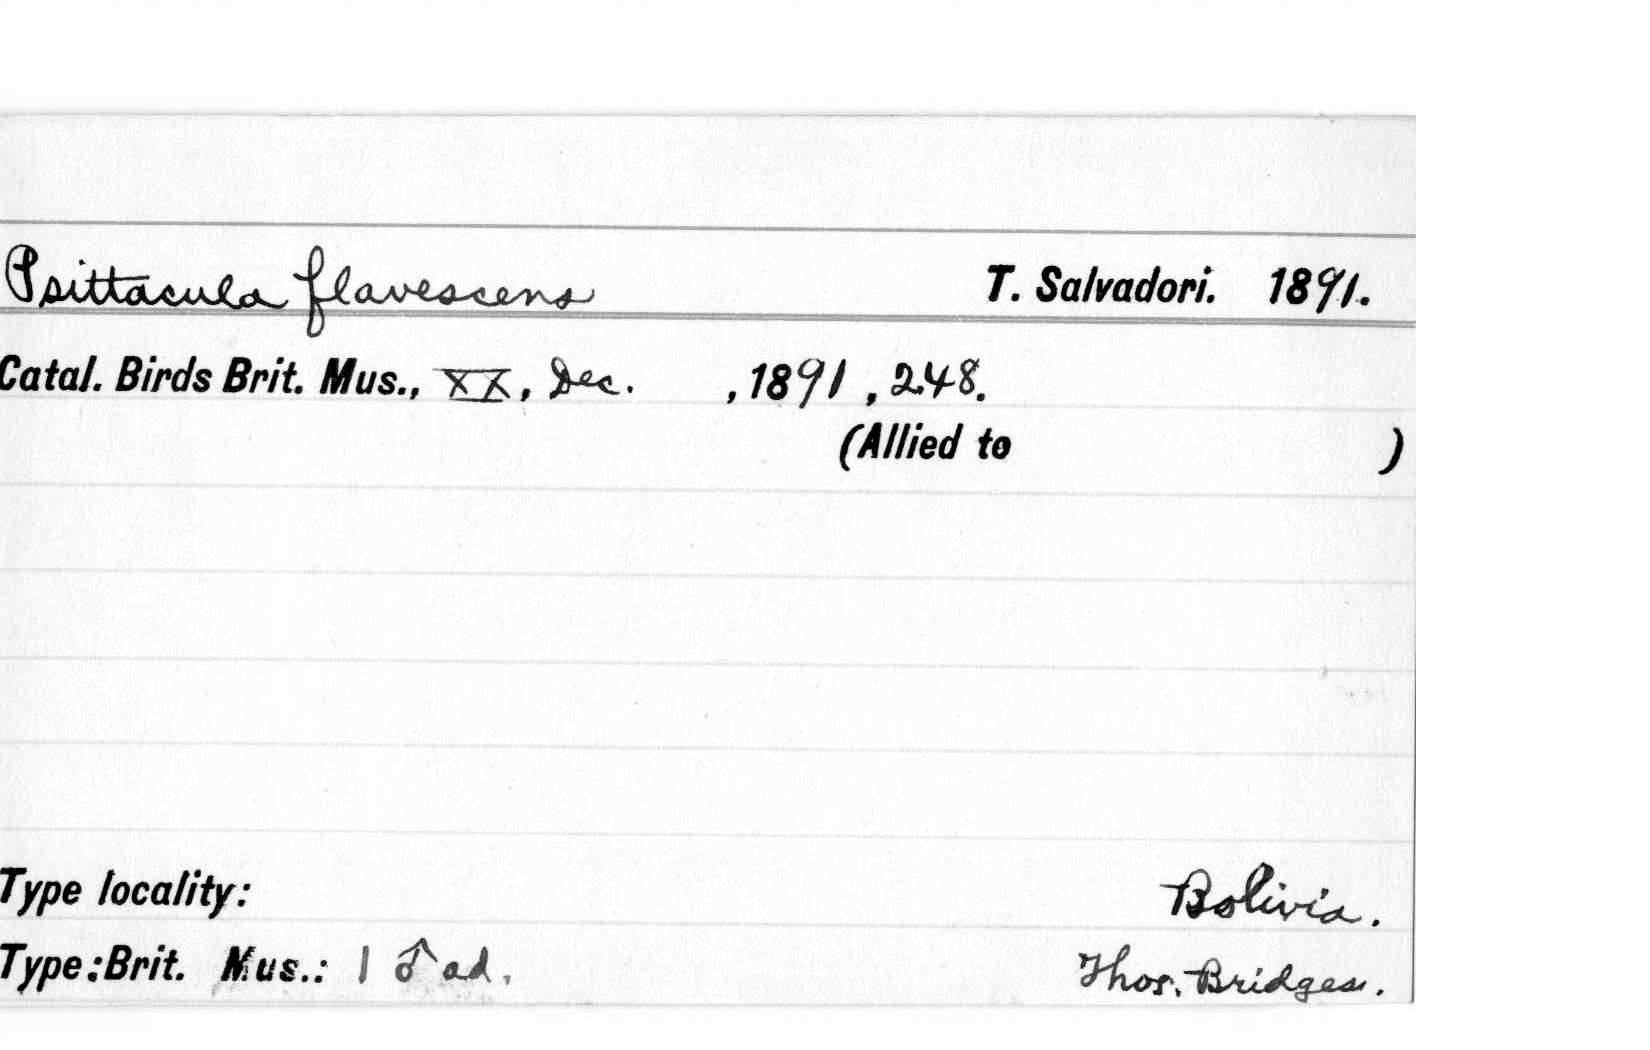 Psittacula flavescens T. Salvadori. 1891.
Catal. Birds Brit. Mus., XX, Dec. , 1891 , 248.
(Allied to )
Type locality: Bolivia.
Type:Brit. Mus.: 1 ♂ ad. Thos. Bridges.